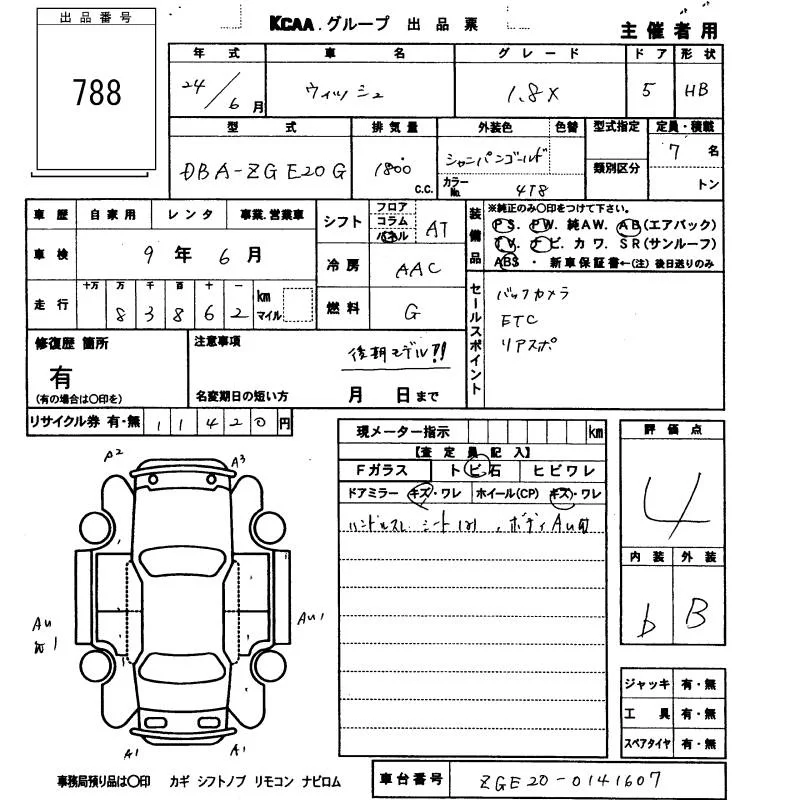 出品番号
788
KCAA.グループ 出品票
主催者用
年式 車名 グレード ドア 形状
24/6月 ウィッシュ 1.8X 5 HB
型式 排気量 外装色 色替 型式指定 定員・積載
DBA-ZGE20G 1800 C.C. シャンパンゴールド 7名
カラーNo. 4T8 類別区分 トン
車歴 自家用 レンタ 事業.営業車
シフト フロア コラム パネル AT
装備品
※純正のみ〇印をつけて下さい。
PS. PW. 純AW. AB(エアバック)
TV. ナビ. カワ. SR(サンルーフ)
ABS ・ 新車保証書←(注) 後日送りのみ
車検 9年6月
冷房 AAC
走行 十万 万 千 百 十 一 km マイル
8 3 8 6 2
燃料 G
セールスポイント
バックカメラ
ETC
リアスポ
修復歴 箇所
有
(有の場合は〇印を)
注意事項
後期モデル!!
名変期日の短い方 月 日まで
リサイクル券 有・無 11420円
現メーター指示 km
【査定員記入】
Fガラス トビ石 ヒビワレ
ドアミラー キズ・ワレ ホイール(CP) キズ・ワレ
ハンドルスレ シート
, ボディAU
評価点
4
内装 外装
b B
A2 A3
AU
1
AU1
A1 A1
ジャッキ 有・無
工具 有・無
スペアタイヤ 有・無
事務局預り品は〇印 カギ シフトノブ リモコン ナビロム
車台番号 ZGE20-0141607